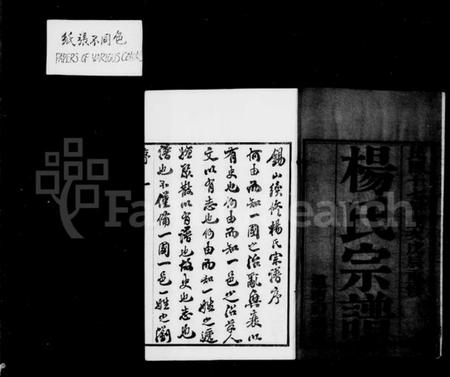 紙張不同色
PAPERS OF VARIOUS COLORS
FamilySearch
楊氏宗譜
錫山續修楊氏宗譜序
何由而知一國之治亂興衰以
有史也何由而知一邑之沿革人
文以有志也何由而知一姓之遞
嬗聚散以有譜也故史也志也
譜也不僅備一國一邑一姓之瀏
序 一